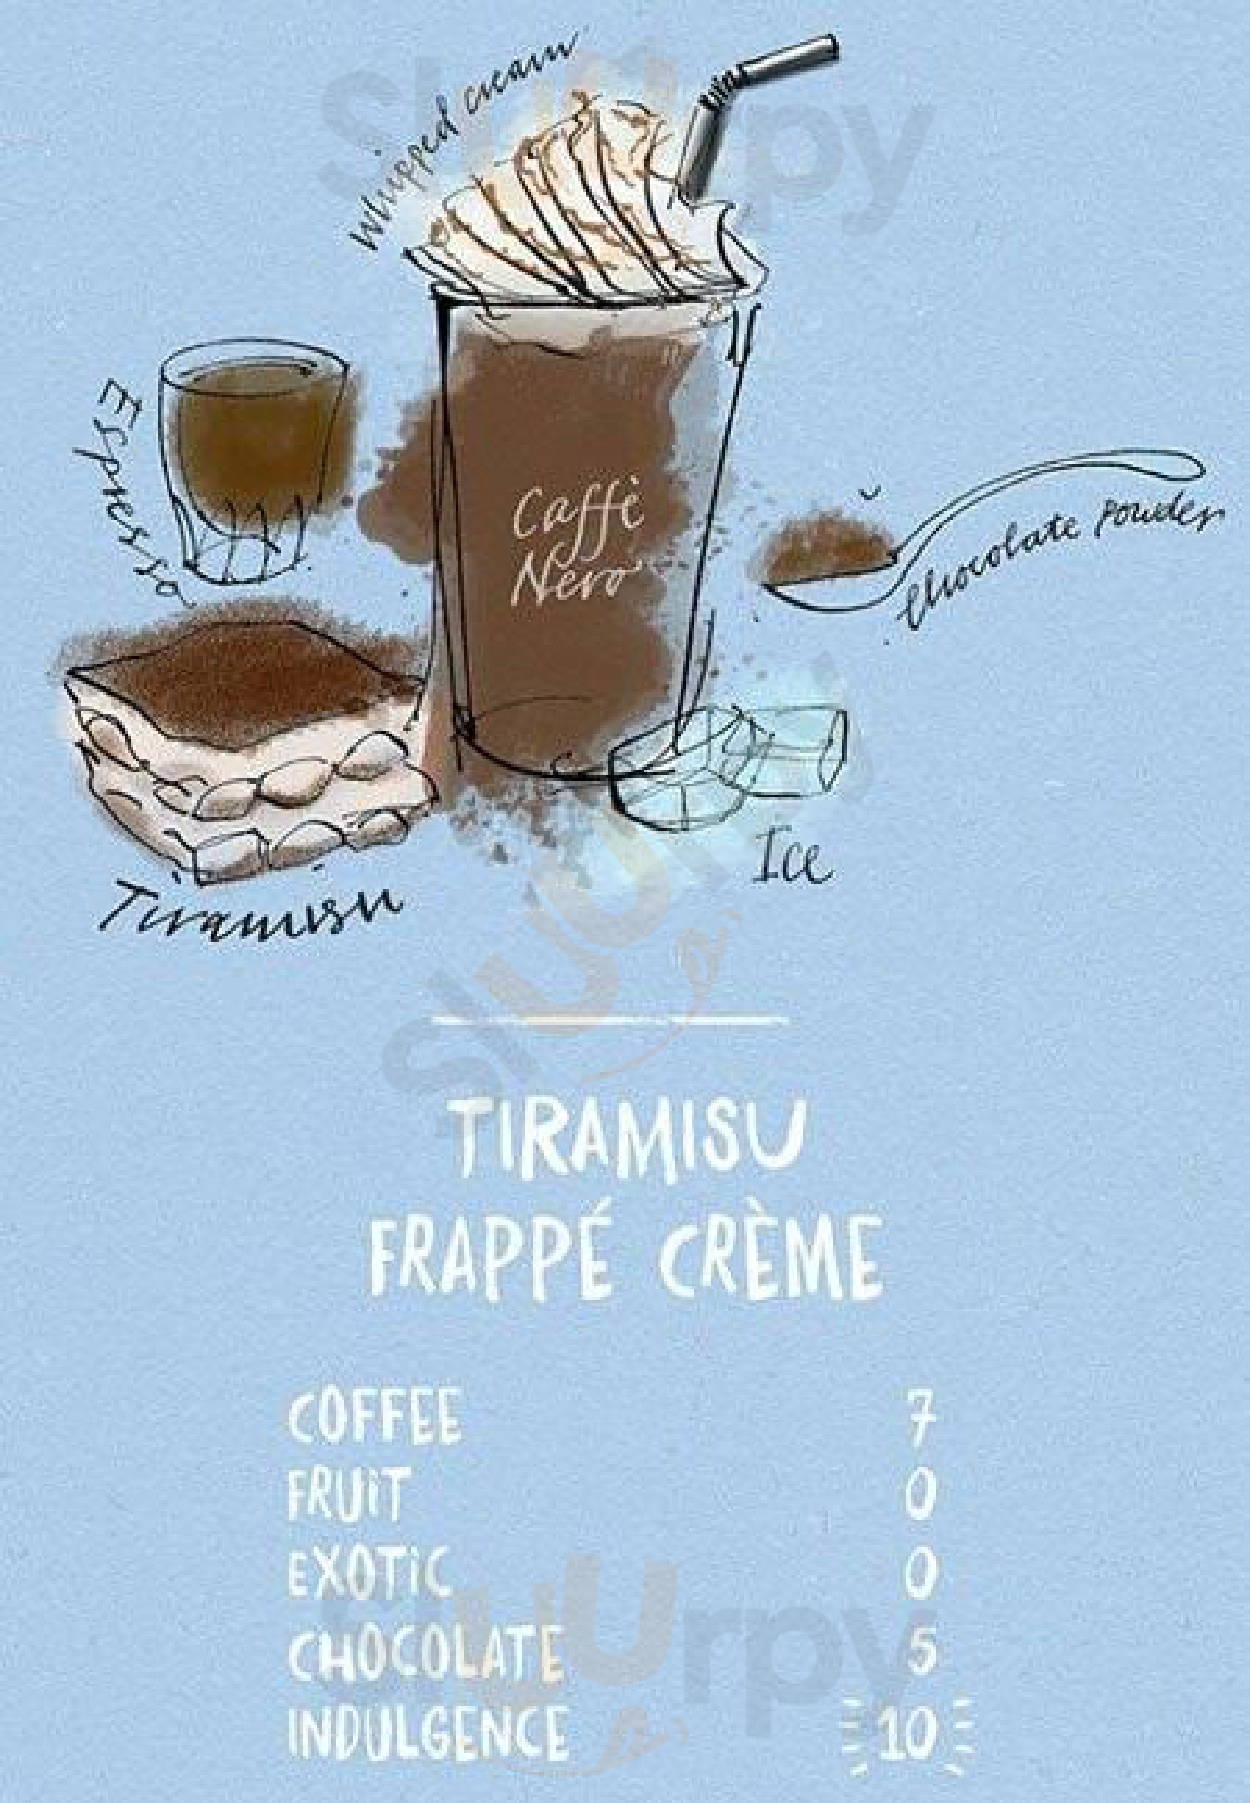 whipped cream
Espresso
Caffè
Nero
Chocolate powder
Ice
Tiramisu
TIRAMISU
FRAPPÉ CRÈME
COFFEE 7
FRUIT 0
EXOTIC 0
CHOCOLATE 5
INDULGENCE 10
slurpy
slurpy
slurpy